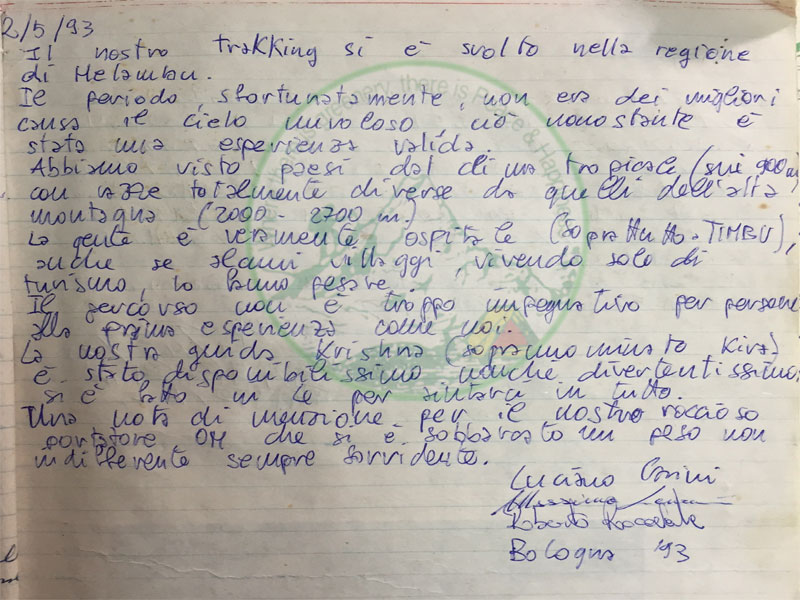 2/5/93
Il nostro traKKing si è svolto nella regione
di Helambu.
Il periodo, sfortunatamente, non era dei migliori
causa il cielo nuvoloso, ciò nonostante è
stata una esperienza valida.
Abbiamo visto paesi dal clima tropicale (sui 900 m)
con razze totalmente diverse da quelli dell'alta
montagna (2000 - 2700 m.)
La gente è veramente ospitale (soprattutto a TIMBU),
anche se alcuni villaggi, vivendo solo di
turismo, lo fanno pesare.
Il percorso non è troppo impegnativo per persone
alla prima esperienza come noi.
La nostra guida Krishna (soprannominato Kira)
è stato disponibilissimo nonché divertentissimo,
si è fatto in 4 per aiutarci in tutto.
Una nota di menzione per il nostro roccioso
portatore OM che si è sobbarcato un peso non
indifferente sempre sorridente.
Luciano
Massimo
Roberto
Bologna '93
there is Peace & Happ